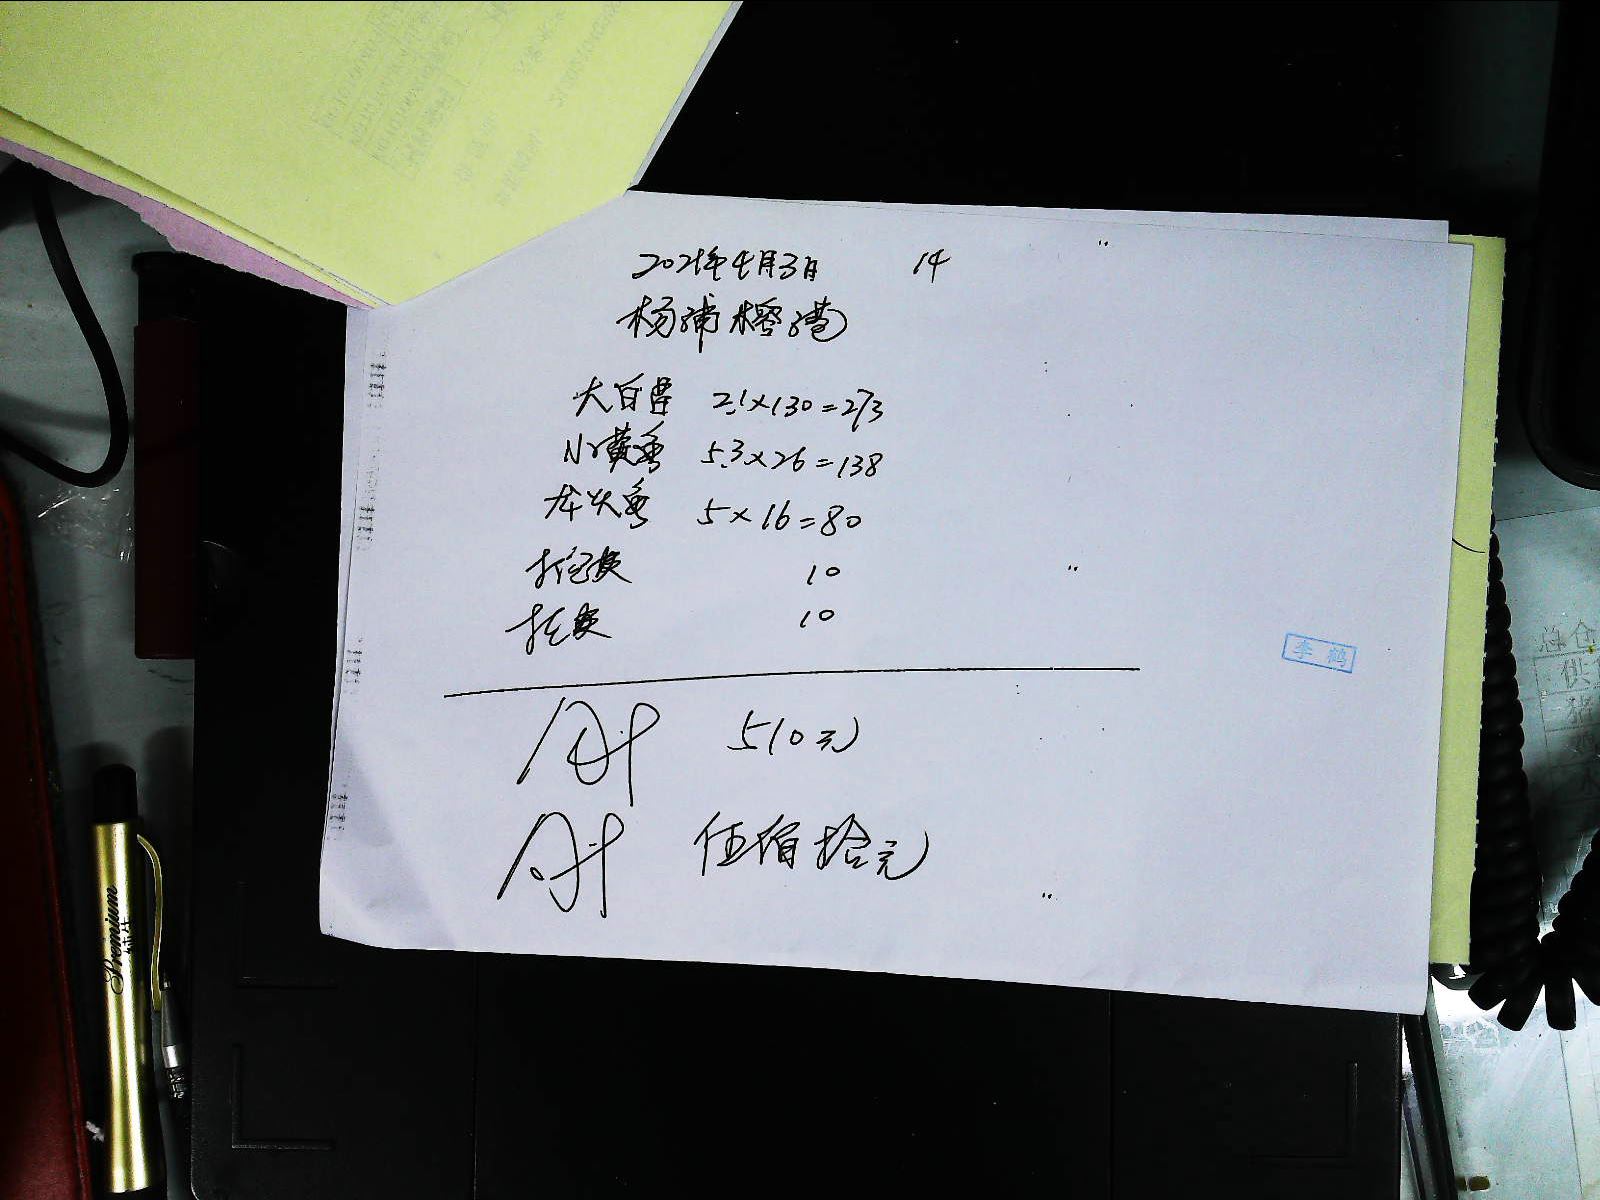 2021年4月3日 14
杨浦榕港
大白 2.1×130=273
小黄鱼 5.3×26=138
龙头鱼 5×16=80
打包费 10
10
李鹤
合计 510元
合计 伍佰拾元
Premium
总仓
供